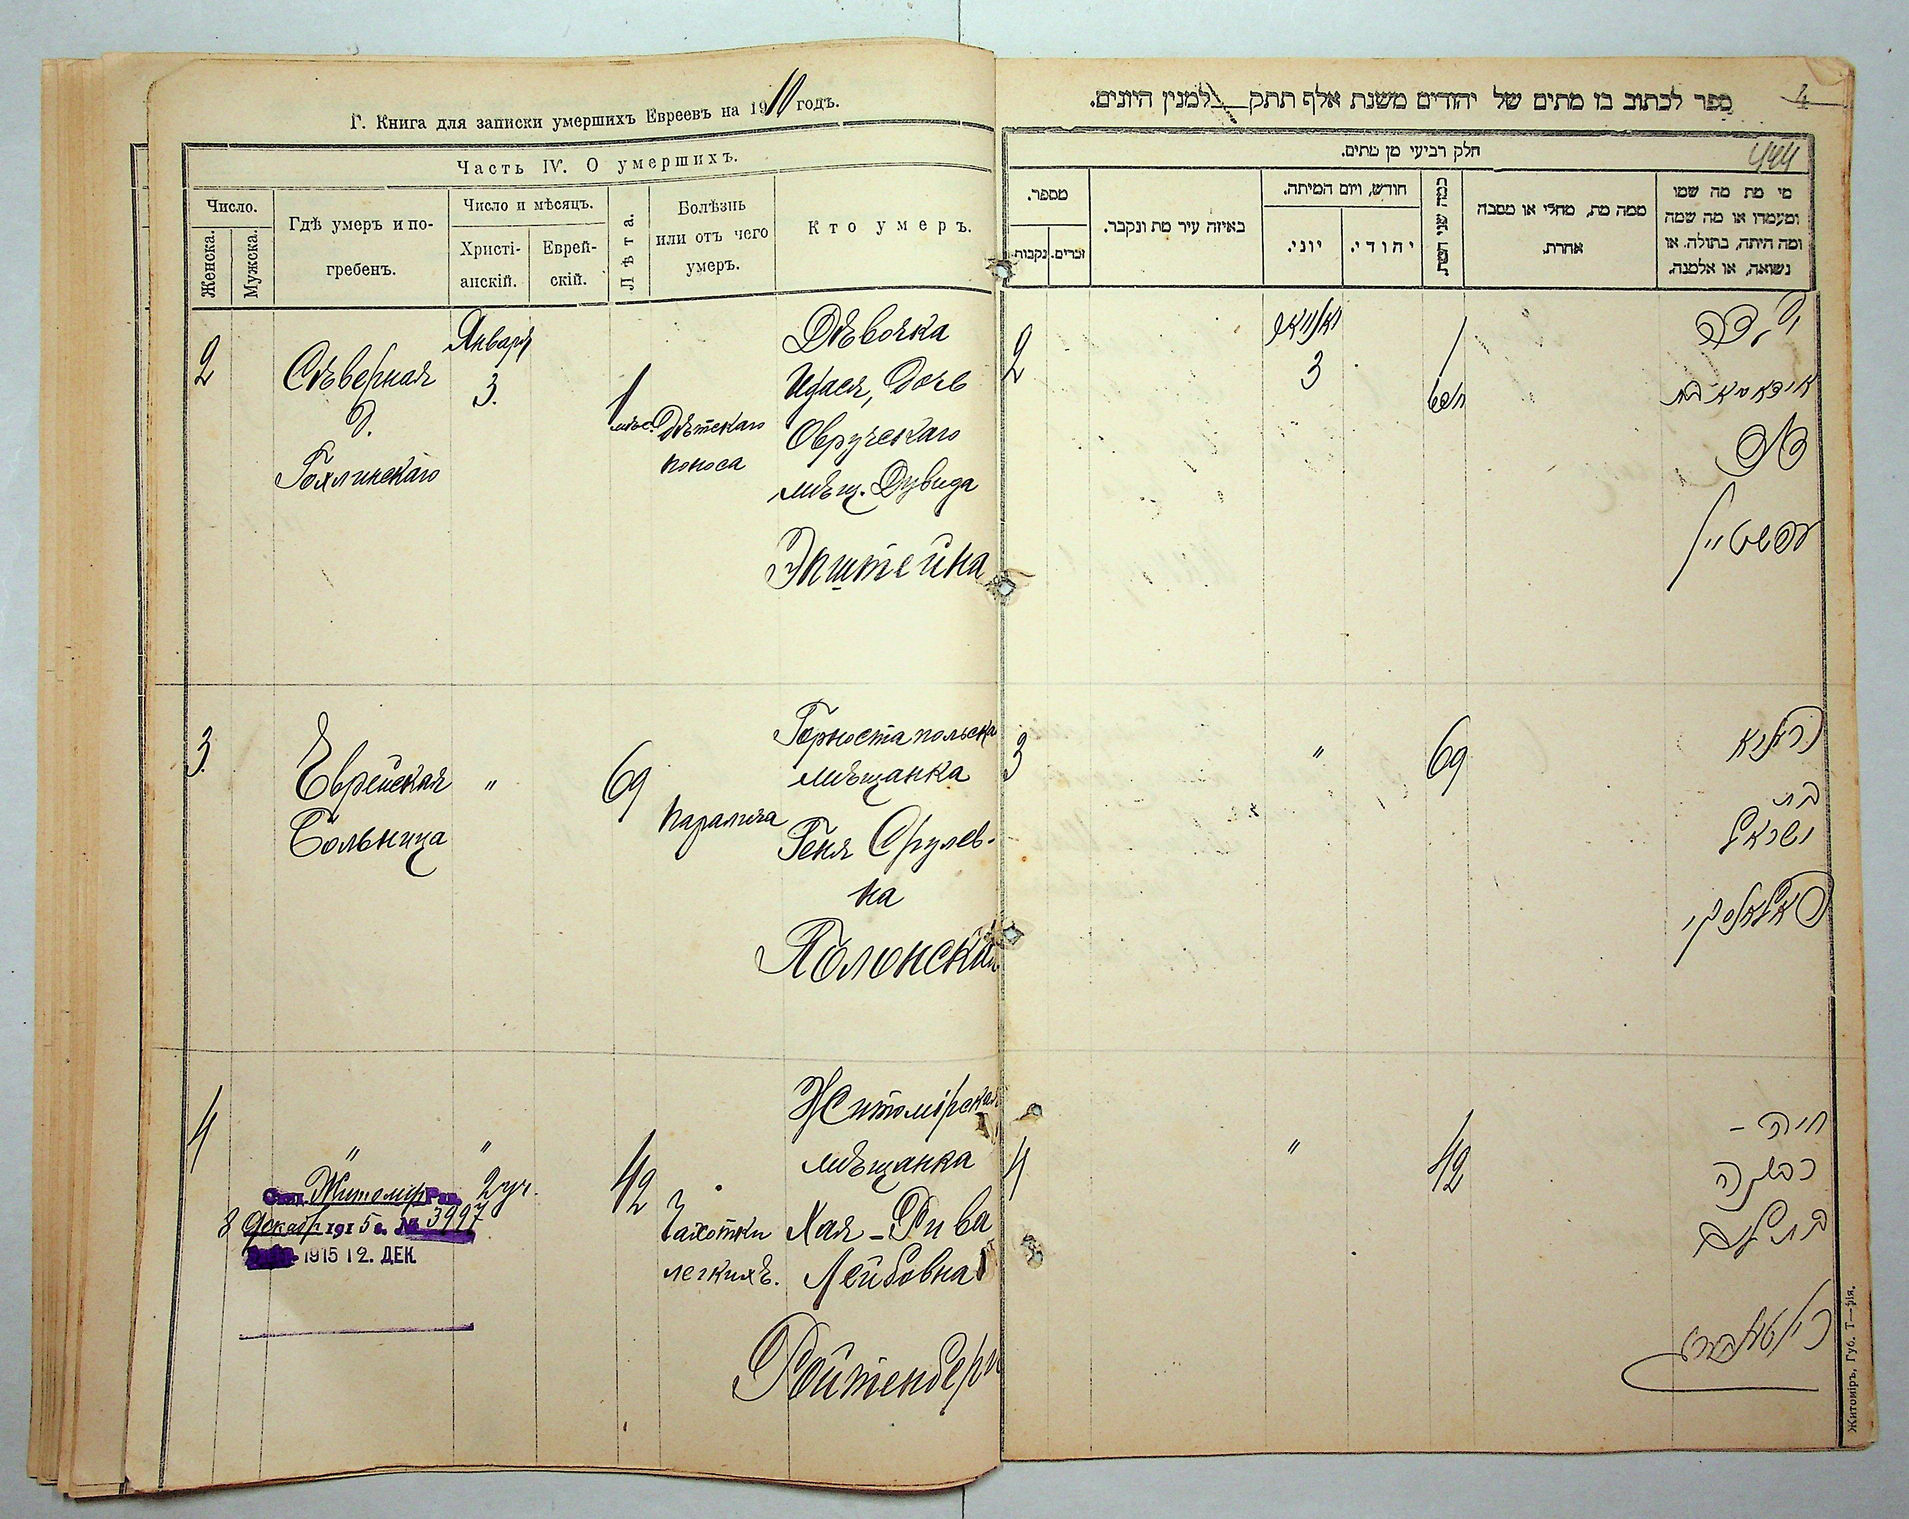 Г. Книга для записки умершихъ Евреевъ на 1910 годъ.
Часть IV. О умершихъ.
Число.
Женска.
Мужска.
Гдѣ умеръ и по-
гребенъ.
Число и мѣсяцъ.
Христі-
анскій.
Еврей-
скій.
Лѣта.
Болѣзнь
или отъ чего
умеръ.
Кто умеръ.
2
Сѣверная
д.
Января
3.
1
мѣс.
Дѣтскаго
поноса
Дѣвочка
дочь
Овручскаго
мѣщ. Дувида
Эпштейна
3
Еврейская
Больница
"
69
паралича
мѣщанка
Геня Срулев-
на
Яблонская
4
"
"
42
Чахотки
легкихъ.
Житомірская
мѣщанка
Хая-Рива
Лейбовна
Ройтенбергъ
Житомір Рав. 2 уч.
8 Декабр 1915 г. № 3997
1915 12. ДЕК.
ספר לכתוב בו מתים של יהודים משנת אלף תתק למנין היונים.
4
444
חלק רביעי מן מתים.
מספר.
נקבות.
זכרים.
באיזה עיר מת ונקבר.
חודש, ויום המיתה.
יוני.
יהודי.
כמה שני המת.
ממה מת, מחלי או מסבה
אחרת.
מי מת מה שמו
ומעמדו או מה שמה
ומה היתה, בתולה. או
נשואה, או אלמנה.
2
יאנואר
3
1
חדש
ילדה
בת
דוד
עפשטיין
3
"
69
בת
ישראל
4
"
42
חיה -
בת ליב
Житоміръ, Губ. Т—фія.